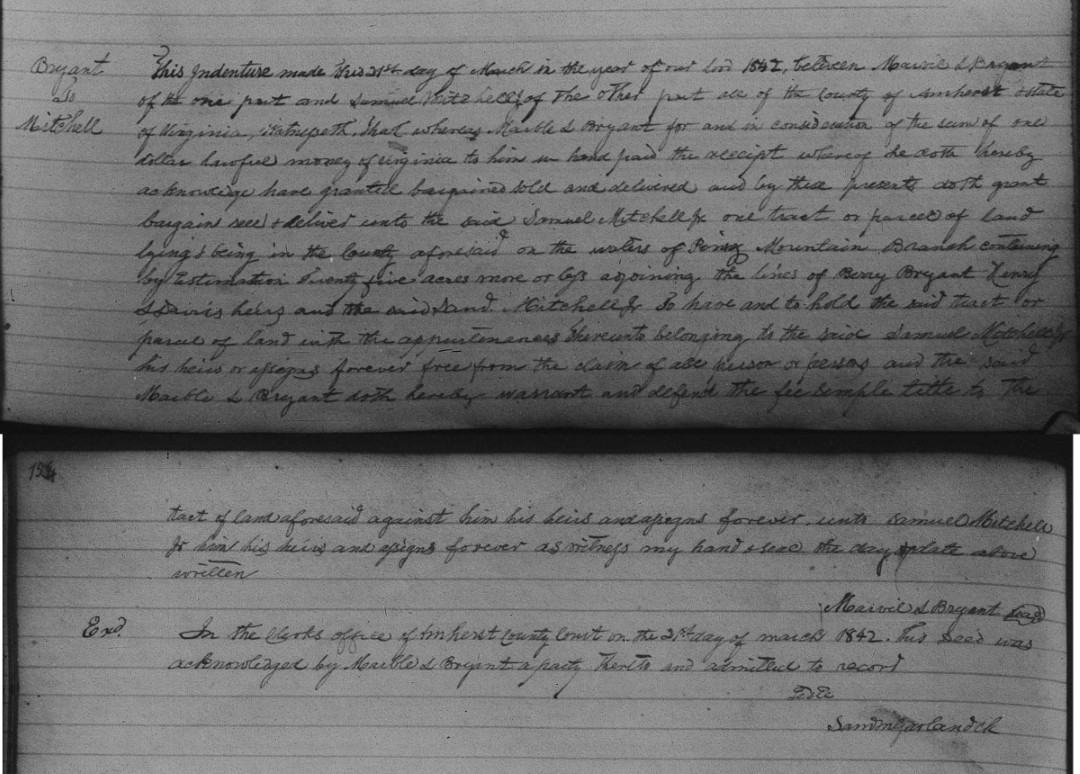 Bryant
to
Mitchell
This Indenture made this 21st day of March in the year of our lord 1842, between Marvil S Bryant
of the one part and Samuel Mitchell Jr of the other part all of the County of Amherst & State
of Virginia, Witnesseth, that whereas Marble S Bryant for and in consideration of the sum of one
dollar lawful money of virginia to him in hand paid the receipt whereof he doth hereby
acknowledge have granted bargained sold and delivered and by these presents doth grant
bargain sell & deliver unto the said Samuel Mitchell Jr one tract or parcel of land
lying & being in the County aforesaid on the waters of Mountain Branch containing
by Estimation Twenty five acres more or less adjoining the lines of Berry Bryant Henry
L Davis heirs and the said Saml. Mitchell Jr To have and to hold the said tract or
parcel of land with the appurtenances thereunto belonging to the said Samuel Mitchell Jr
his heirs or assigns forever free from the claim of all person or persons and the said
Marble S Bryant doth hereby warrant and defend the fee simple title to the
154
tract of land aforesaid against him his heirs and assigns forever. unto Samuel Mitchell
Jr him his heirs and assigns forever as witness my hand & seal the day & date above
written
Marvil S Bryant seal
Exd.
In the Clerks office of Amherst County Court on the 21st day of march 1842. This deed was
acknowledged by Marble S Bryant a party thereto and admitted to record
Teste
Saml M Garland Clk